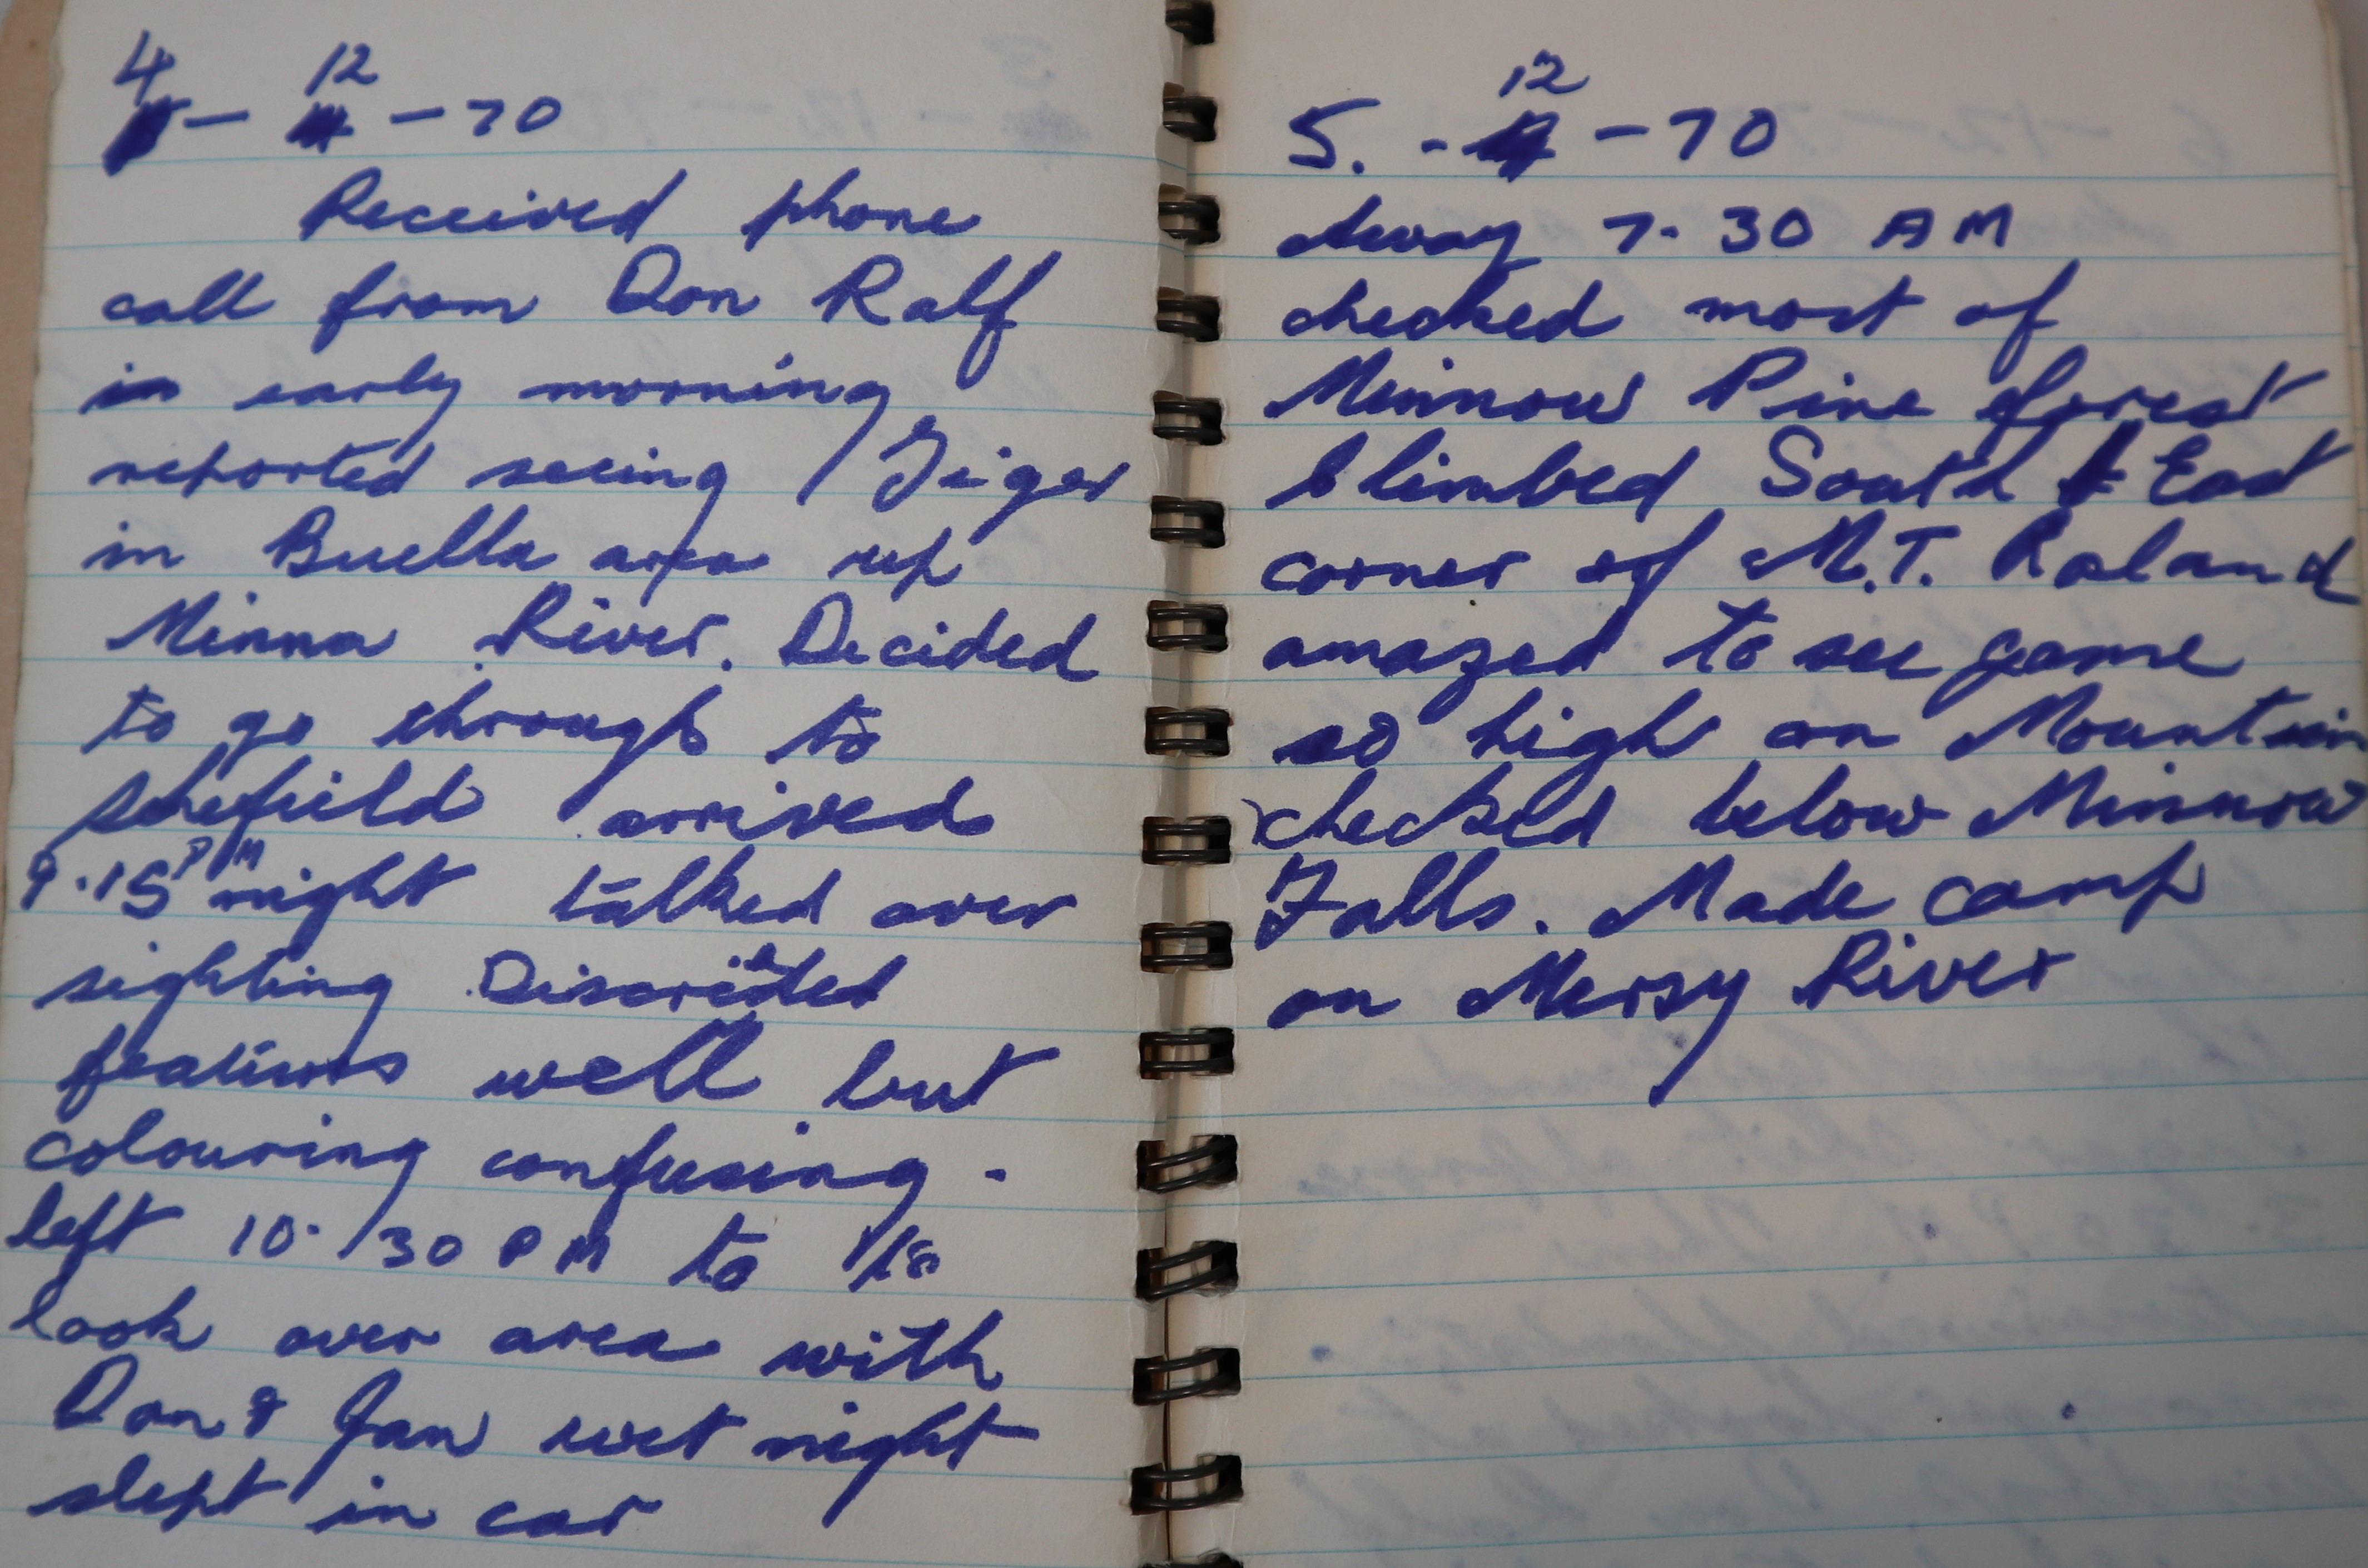 4 - 12 - 70
Received phone
call from Don Ralf
in early morning
reported seeing Tiger
in Buella area up
Minna River. Decided
to go through to
Shefield arrived
9.15 PM night talked over
sighting Discribed
features well but
colouring confusing.
left 10.30 PM to to
look over area with
Don & Jan wet night
slept in car
5. - 12 - 70
Away 7.30 AM
checked most of
Minnow Pine forest
Climbed South East
corner of M.T. Roland
amazed to see game
so high on Mountain
checked below Minnow
Falls. Made camp
on Mersy River